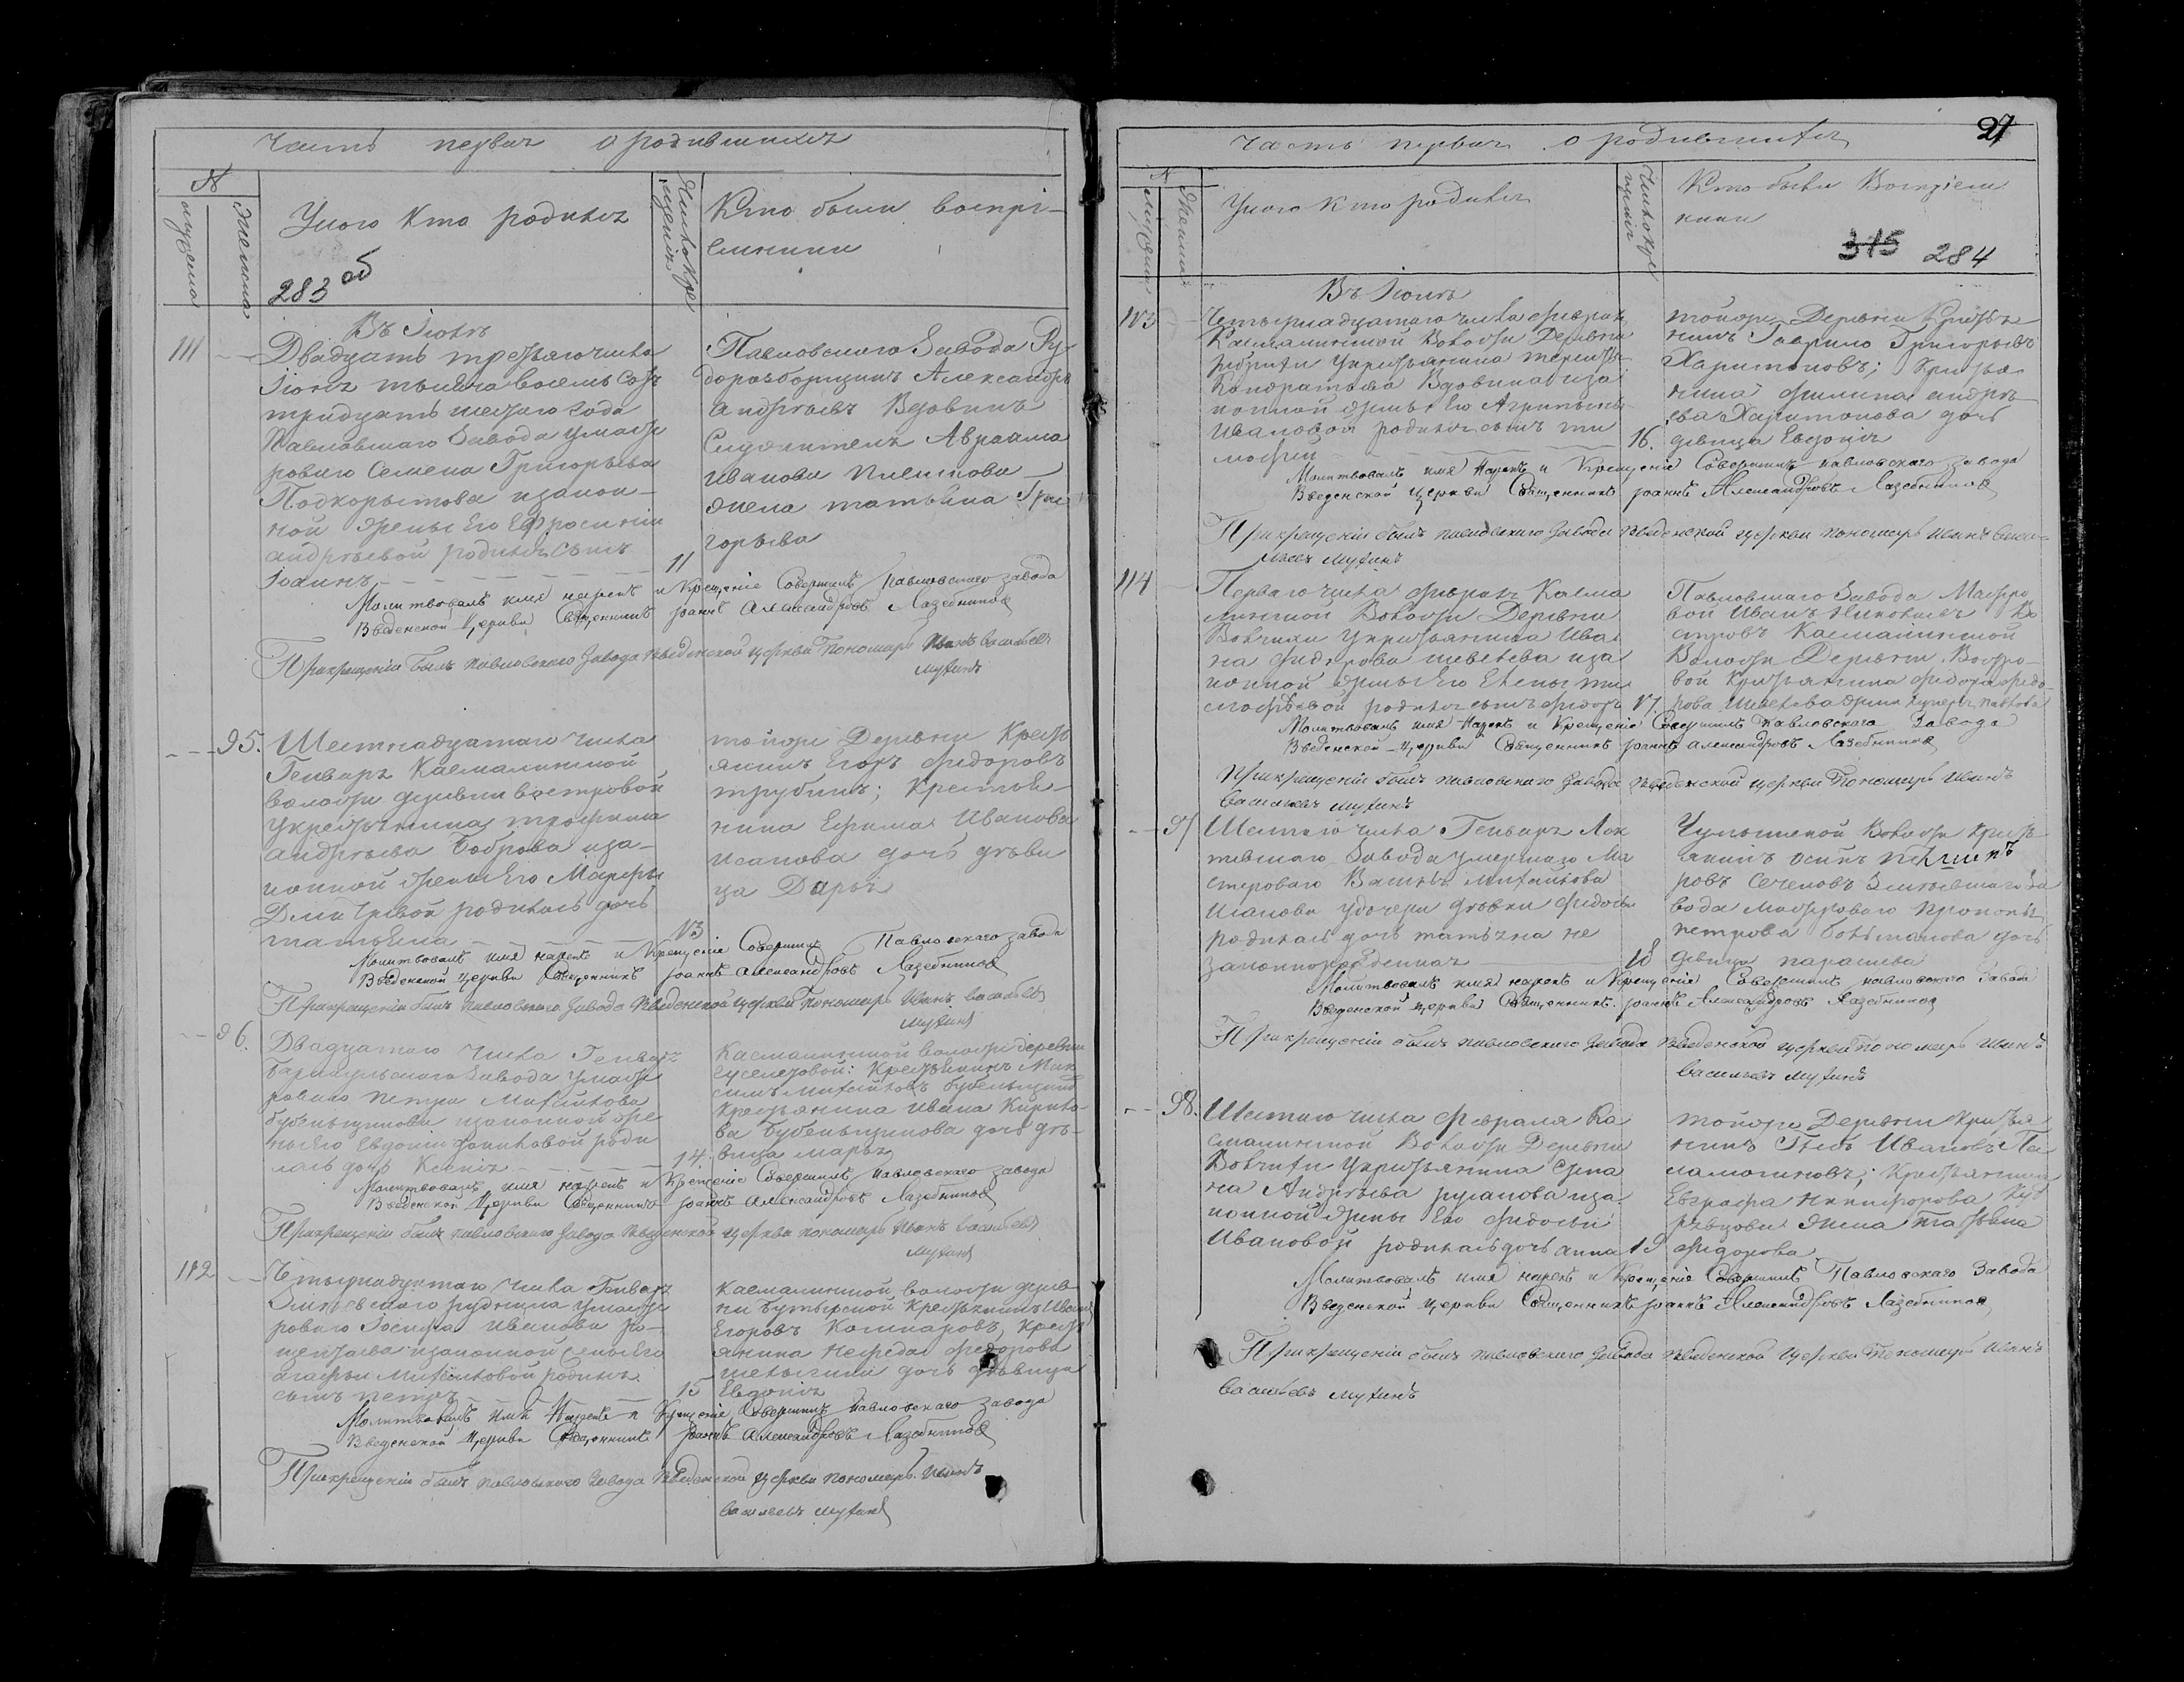 Часть первая о родившихся
№
мужеска
женска
Укого Кто родился
Число кре
щенія
Кто были воспрі-
емники
283 об
Въ Іюнѣ
111
Двадцать третьяго числа
Іюня тысяча восемь сотъ
тридцать шестаго года
Павловскаго Завода умасте
роваго Семена Григорьева
Подкорытова изакон-
ной жены Его Ефросиніи
андрѣевой родился сынъ
Іоаннъ
11
Павловскаго Завода Ру
доразборщикъ Александръ
андрѣевъ Вдовинъ
Авраама
иванова
жена татьяна Гри
горьева
Молитвовалъ имя нарекъ и Крещеніе Совершилъ Павловскаго завода
Введенской Церкви Священникъ Іоаннъ Александровъ Лазебников
Прикрещеніи былъ павловскаго Завода введенской церкви Пономарь Иванъ васильевъ
мухинъ
95.
Шестнадцатаго числа
Генваря Касмалинской
волости деревни востровой
Укрестьянина трофима
андрѣева Боброва иза-
конной жены Его Марфы
Дмитріевой родилась дочь
татьяна
13
тойже Деревни Крест
янинъ Егоръ федоровъ
трубинъ; крестья-
нина Ефима Иванова
Исакова дочь дѣви
ца Дарья
Молитвовалъ имя нарекъ и Крещеніе Совершилъ Павловскаго завода
Введенской Церкви Священникъ Іоаннъ Александровъ Лазебников
Прикрещеніи былъ павловскаго Завода введенской церкви Пономарь Иванъ васильевъ
мухинъ
96.
Двадцатаго Числа Генваря
Барнаульскаго Завода умасте
роваго петра Михайлова
бубеньщикова изаконной же
ны Его Евдокіи даниловой роди
лась дочь Ксенія
14.
Касмалинской волости деревни
Гуселетовой: Крестьянинъ Мак
симъ михайловъ бубеньщиковъ
крестьянина ивана Кирило-
ва Бубеньщикова дочь дѣ-
вица марья
Молитвовалъ имя нарекъ и Крещеніе Совершилъ Павловскаго завода
Введенской Церкви Священникъ Іоаннъ Александровъ Лазебников
Прикрещеніи былъ павловскаго Завода введенской церкви пономарь Иванъ васильевъ
мухинъ
112
Четырнадцатаго числа Генваря
рудника умасте
роваго Іосифа иванова
изаконной жены Его
агафьи Михайловой родился
сынъ петръ
15
касмалинской волости дерев-
ни бутырской крестьянинъ Иванъ
Егоровъ крест
янина Нефеда федорова
дочь дѣвица
Евдокія
Молитвовалъ имя Нарекъ и Крещеніе Совершилъ павловскаго завода
Введенской Церкви Священникъ Іоаннъ Александровъ Лазебников
Прикрещеніи былъ павловскаго Завода введенской церкви пономарь Иванъ
васильевъ мухинъ
27
Часть первая о родившихся
№
мужеска
женска
Укого Кто родился
Число кре
щенія
Кто были Воспріем
ники
315 284
Въ Іюнѣ
113
Четырнадцатаго числа февраля
Касмалинской Волости Деревни
Ребрихи Укрестьянина терентья
Кондратьева Вдовина иза
конной жены Его Агрипины
Ивановой родился сынъ ти
мофей
16.
тойже Деревни Крестья
нинъ Гаврило Григорьевъ
Харитоновъ; Крестья
нина филипа андрѣ
ева Харитонова дочь
дѣвица Евдокія
Молитвовалъ имя Нарекъ и Крещеніе Совершилъ павловскаго завода
Введенской Церкви Священникъ Іоаннъ Александровъ Лазебников
Прикрещеніи былъ павловскаго Завода введенской церкви пономарь Иванъ васи-
льевъ мухинъ
114
Перваго числа февраля Касма
линской Волости Деревни
Вовчихи Укрестьянина Ива
на федорова шевелева иза
конной жены Его Елены ти
мофѣевой родился сынъ федоръ
17.
Павловскаго Завода Мастеро
вой Иванъ Николаевъ
Касмалинской
Волости Деревни Востро-
вой Крестьянина федора федо
рова Шевелева жена павлова
Молитвовалъ имя Нарекъ и Крещеніе Совершилъ Павловскаго Завода
Введенской Церкви Священникъ Іоаннъ Александровъ Лазебников
Прикрещеніи былъ павловскаго Завода введенской церкви Пономарь Иванъ
васильевъ мухинъ
97
Шестаго числа Генваря Лок
тевскаго Завода умершаго Ма
стероваго Василья михайлова
Исакова удочери дѣвки федосьи
родилась дочь татьяна не
законнорожденная
18
Чумышской Волости Крест
янинъ
Семеновъ За
вода мастероваго Прокопья
петрова дочь
дѣвица парасковья
Молитвовалъ имя нарекъ и Крещеніе Совершилъ павловскаго Завода
Введенской Церкви Священникъ Іоаннъ Александровъ Лазебников
Прикрещеніи былъ павловскаго Завода введенской церкви пономарь Иванъ
васильевъ мухинъ
98.
Шестаго числа февраля Ка
смалинской Волости Деревни
Вовчихи Укрестьянина Степа
на Андрѣева русанова иза
конной жены Его федосьи
Ивановой родилась дочь анна
19
тойже Деревни Крестья
нинъ Глебъ Ивановъ Па
ламошновъ; Крестьянина
Евграфа никифорова
жена Татьяна
федорова
Молитвовалъ имя нарекъ и Крещеніе Совершилъ Павловскаго Завода
Введенской Церкви Священникъ Іоаннъ Александровъ Лазебников
Прикрещеніи былъ павловскаго Завода введенской церкви Пономарь Иванъ
васильевъ мухинъ